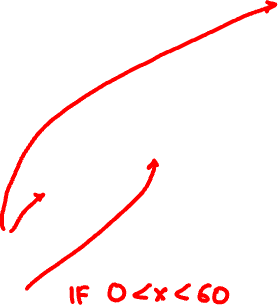 IF 0<x<60